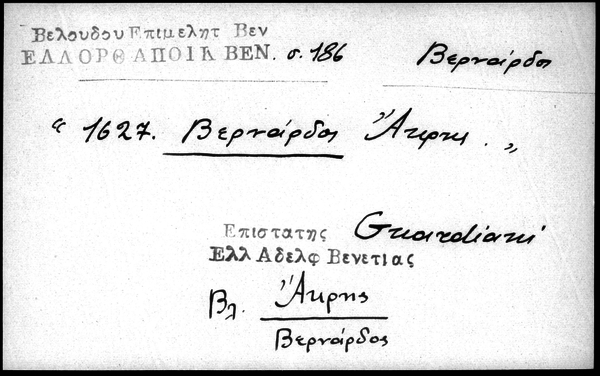 Βελουδου Επιμελητ Βεν
ΕΛΛΟΡΘ ΑΠΟΙΚ ΒΕΝ. σ. 186
Βερνάρδος
“ 1627. Βερνάρδος Ἄκρης . „
Επιστατης Guardiani
Ελλ Αδελφ Βενετιας
Βλ. Ἄκρης
Βερνάρδος